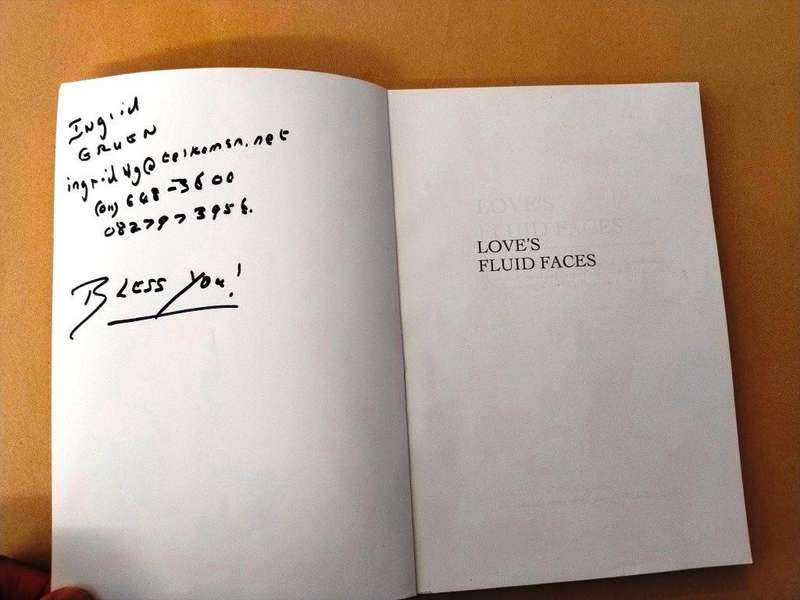 Ingrid
GRUEN
ingrid4g@telkomsa.net
(011) 648-3600
0827973956.
BLESS YOU!
LOVE'S
FLUID FACES